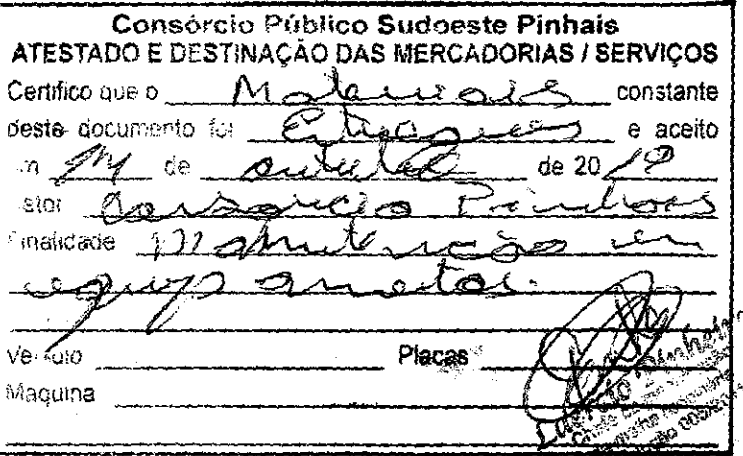 Consórcio Público Sudoeste Pinhais
ATESTADO E DESTINAÇÃO DAS MERCADORIAS / SERVIÇOS
Certifico que o Materiais constante
deste documento foi Entregues e aceito
de outubro de 20 19
Consorcio Pinhais
Finalidade Manutenção em
equipamentos.
Veículo Placas
Maquina
Pinheiro